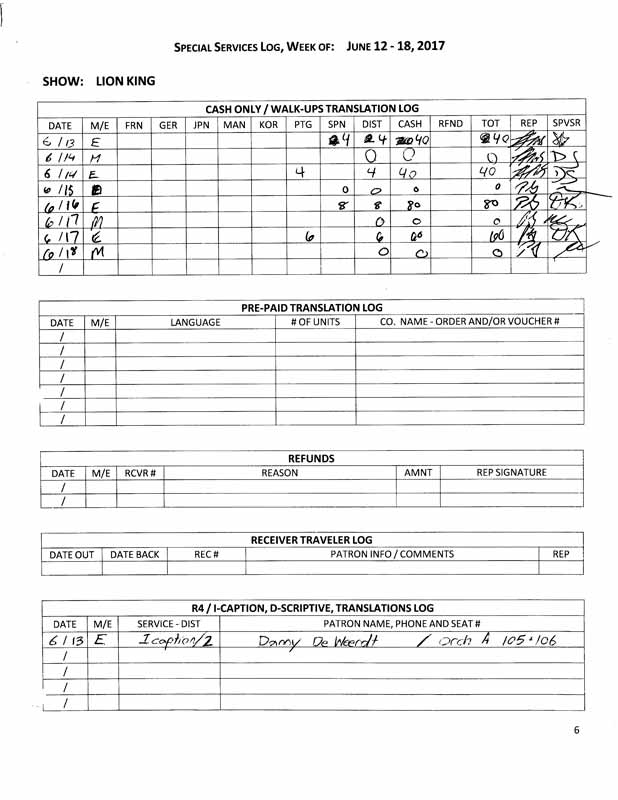 SPECIAL SERVICES LOG, WEEK OF: JUNE 12 - 18, 2017
SHOW: LION KING
CASH ONLY / WALK-UPS TRANSLATION LOG
DATE M/E FRN GER JPN MAN KOR PTG SPN DIST CASH RFND TOT REP SPVSR
6 / 13 E 4 4 40 40
6 / 14 M 0 0 0 DS
6 / 14 E 4 4 40 40 DS
6 / 15 0 0 0 0 PS
6 / 16 E 8 8 80 80
6 / 17 M 0 0 0
6 / 17 E 6 6 60 100
6 / 18 M 0 0 0
/
PRE-PAID TRANSLATION LOG
DATE M/E LANGUAGE # OF UNITS CO. NAME - ORDER AND/OR VOUCHER #
/
/
/
/
/
/
/
REFUNDS
DATE M/E RCVR # REASON AMNT REP SIGNATURE
/
/
RECEIVER TRAVELER LOG
DATE OUT DATE BACK REC # PATRON INFO / COMMENTS REP
R4 / I-CAPTION, D-SCRIPTIVE, TRANSLATIONS LOG
DATE M/E SERVICE - DIST PATRON NAME, PHONE AND SEAT #
6 / 13 E Icaption/2 Danny De Weerdt / Orch A 105+106
/
/
/
/
6